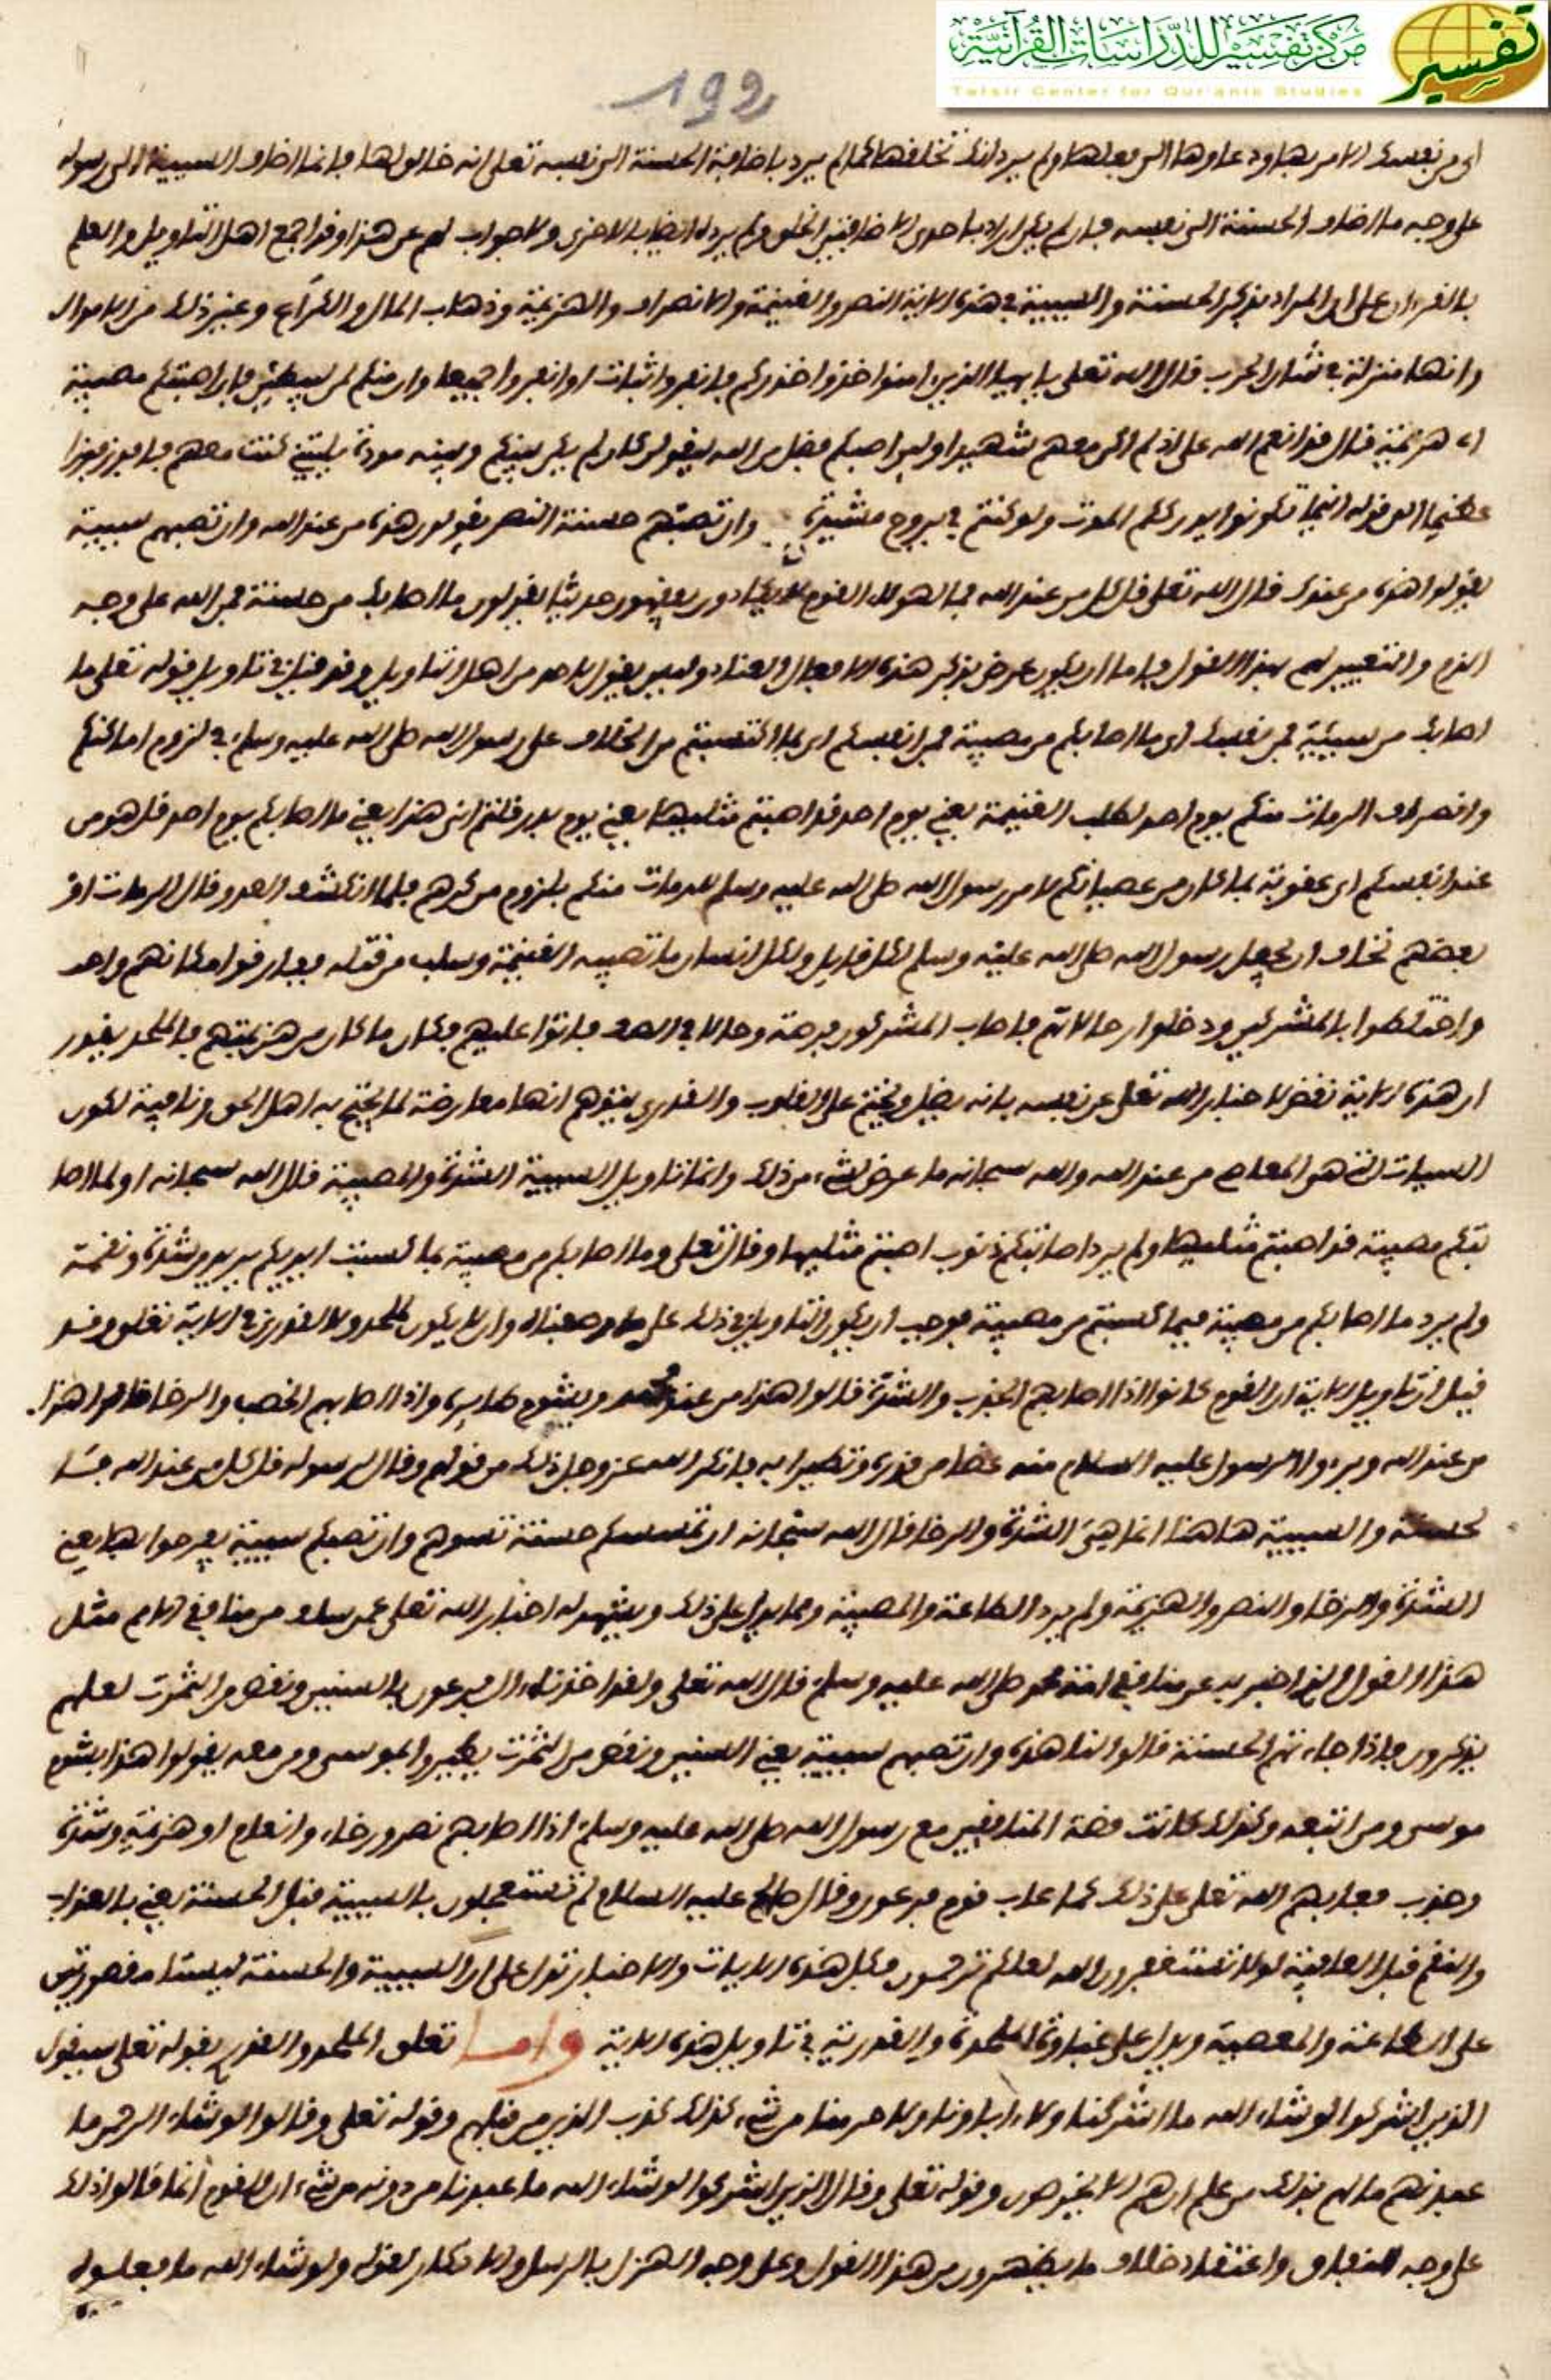 مركز تفسير للدراسات القرآنية
تفسير
Tafsir Center for Qur'anic Studies
192
اى من نفسك الامر بها ودعاوها الى فعلها ولم يرد انك تخلقها كما لم يرد باضافة الحسنة الى نفسه تعلى انه خالقها فانما اضاف السيية الى رسوله
على وجه ما اضاف الحسنة الى نفسه فان لم يكن اراد باحدى الاضافتين الخلق لم يرده ايضا بالاخرى ولا جواب لهم عن هذا وقد اجمع اهل التاويل والعلم
بالقرءان على ان المراد بذكر الحسنة والسيية في هذه الاية النصر والغنيمة والانصراف والهزيمة وذهاب المال والكراع وغير ذلك من الاموال
وانها منزلة في شان الحرب قال الله تعلى يايها الذين امنوا خذوا حذركم فانفروا ثبات او انفروا جميعا وان منكم لمن ليبطين فان اصبتكم مصيبة
اى هزيمة قال قد انعم الله على اذ لم اكن معهم شهيدا ولين اصبكم فضل من الله ليقولن كان لم يكن بينكم وبينه مودة يليتني كنت معهم فافوز فوزا
عظيما الى قوله اينما تكونوا يدرككم الموت ولو كنتم في بروج مشيدة وان تصبهم حسنة النصر يقولون هذه من عند الله وان تصبهم سيية
يقولوا هذه من عندك قال الله تعلى قل كل من عند الله فما لهولاء القوم لا يكادون يفقهون حديثا يقولون ما اصابك من حسنة فمن الله على وجه
الذم والتعيير لهم بهذا القول فاما ان يكون عرض بذكر هذه الافعال العباد وليس يقول لاحد من اهل التاويل وقد قيل في تاويل قوله تعلى ما
اصابك من سيئة فمن نفسك اى ما اصابكم من مصيبة فمن انفسكم اى بما اكتسبتم من الخلاف على رسول الله صلى الله عليه وسلم في لزوم اماكنكم
وانصراف الرمات منكم يوم احد لطلب الغنيمة يعني يوم احد قد اصبتم مثليها يعني يوم بدر قلتم انى هذا يعني ما اصابكم يوم احد قل هو من
عند انفسكم اى عقوبة بما كان من عصيانكم لامر رسول الله صلى الله عليه وسلم للرمات منكم بلزوم مركزهم فلما انكشف العدو قال الرمات او
بعضهم نخاف ان يجعل رسول الله صلى الله عليه وسلم لكل قاتل ولكل انسان ما تصيبه الغنيمة وسلب من قتله ففارقوا مكانهم واحد
واختلطوا بالمشركين ودخلوا رحالاتهم فاصاب المشركون فرصة وخللا في الصف فاتوا عليهم فكان ما كان من هزيمتهم فالملحد يقول
ان هذه الاية نقض لاخبار الله تعلى عن نفسه بانه يضل ويختم على القلوب والقدري يتوهم انها معارضة لما يحتج به اهل الحق ونافية لكون
السيات التي هي المعاصي من عند الله والله سبحانه ما عرض لشيء من ذلك وانما تاويل السيية الشدة والمصيبة قال الله سبحانه اولما اصا
بتكم مصيبة قد اصبتم مثليها ولم يرد اصابتكم ذنوب اصبتم مثليها وقال تعلى وما اصابكم من مصيبة بما كسبت ايديكم يريد من شدة ونقمة
ولم يرد ما اصابكم من مصيبة فيما كسبتم من مصيبة فوجب ان يكون التاويل في ذلك على ما وصفناه وان لا يكون للملحد ولا القدري في الاية تعلق وقد
قيل ان تاويل الاية ان القوم كانوا اذا اصابهم الجدب والشدة قالوا هذا من عند محمد وبشوم طايره واذا اصابهم الخصب والرخا قالوا هذا
من عند الله وبرءوا الرسول عليه السلام منه غضا من قدره وتطيرا به فانكر الله عز وجل ذلك من قولهم وقال لرسوله قل كل من عند الله فا
لحسنة والسيية هاهنا انما هي الشدة والرخا قال الله سبحانه ان تمسسكم حسنة تسوهم وان تصبكم سيية يفرحوا بها يعني
الشدة والرخا والنصر والهزيمة ولم يرد الطاعة والمصيبة ومما يدل على ذلك ويشهد له اخبار الله تعلى عمن سلف من منافقي الامم مثل
هذا القول الذي اخبر به عن منافقي امة محمد صلى الله عليه وسلم قال الله تعلى ولقد اخذنا ءال فرعون بالسنين ونقص من الثمرت لعلهم
يذكرون فاذا جاءتهم الحسنة قالوا لنا هذه وان تصبهم سيية يعني السنين ونقص من الثمرت يطيروا بموسى ومن معه يقولوا هذا بشوم
موسى ومن اتبعه وكذلك كانت قصة المنافقين مع رسول الله صلى الله عليه وسلم اذا اصابهم نصر ورخاء وانعام او هزيمة وشدة
وجدب فعابهم الله تعلى على ذلك كما عاب قوم فرعون وقال صالح عليه السلام لم تستعجلون بالسيية قبل الحسنة يعني بالعذاب
والنقم قبل العافية لولا تستغفرون الله لعلكم ترحمون فكل هذه الايات والاخبار تدل على ان السيية والحسنة ليستا مقصورتين
على الطاعة والمعصية ويدل على غباوة الملحدة والقدرية في تاويل هذه الاية واما تعلق الملحد والقدري بقوله تعلى سيقول
الذين اشركوا لو شاء الله ما اشركنا ولا ءاباونا ولا حرمنا من شيء كذلك كذب الذين من قبلهم وقوله تعلى وقالوا لو شاء الرحمن ما
عبدنهم ما لهم بذلك من علم ان هم الا يخرصون وقوله تعلى وقال الذين اشركوا لو شاء الله ما عبدنا من دونه من شيء ان القوم انما قالوا ذلك
على وجه النفاق واعتقاد خلاف ما يظهرون من هذا القول وعلى وجه الهزل بالرسل والانكار لقوله ولو شاء الله ما فعلوه